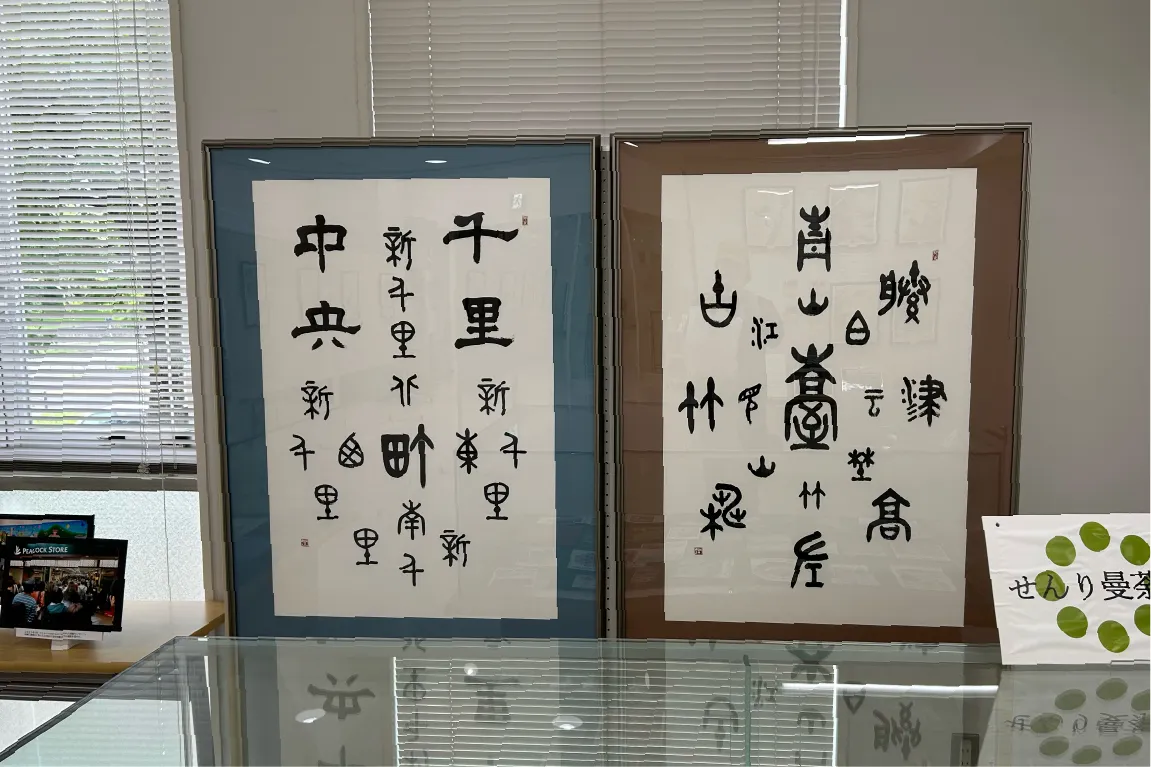 千里
中央
新千里北町
新千里東
新千里南
新千里西
青山臺
白
津云
高埜
左竹
山
竹
古江
せんり曼荼
PEACOCK STORE